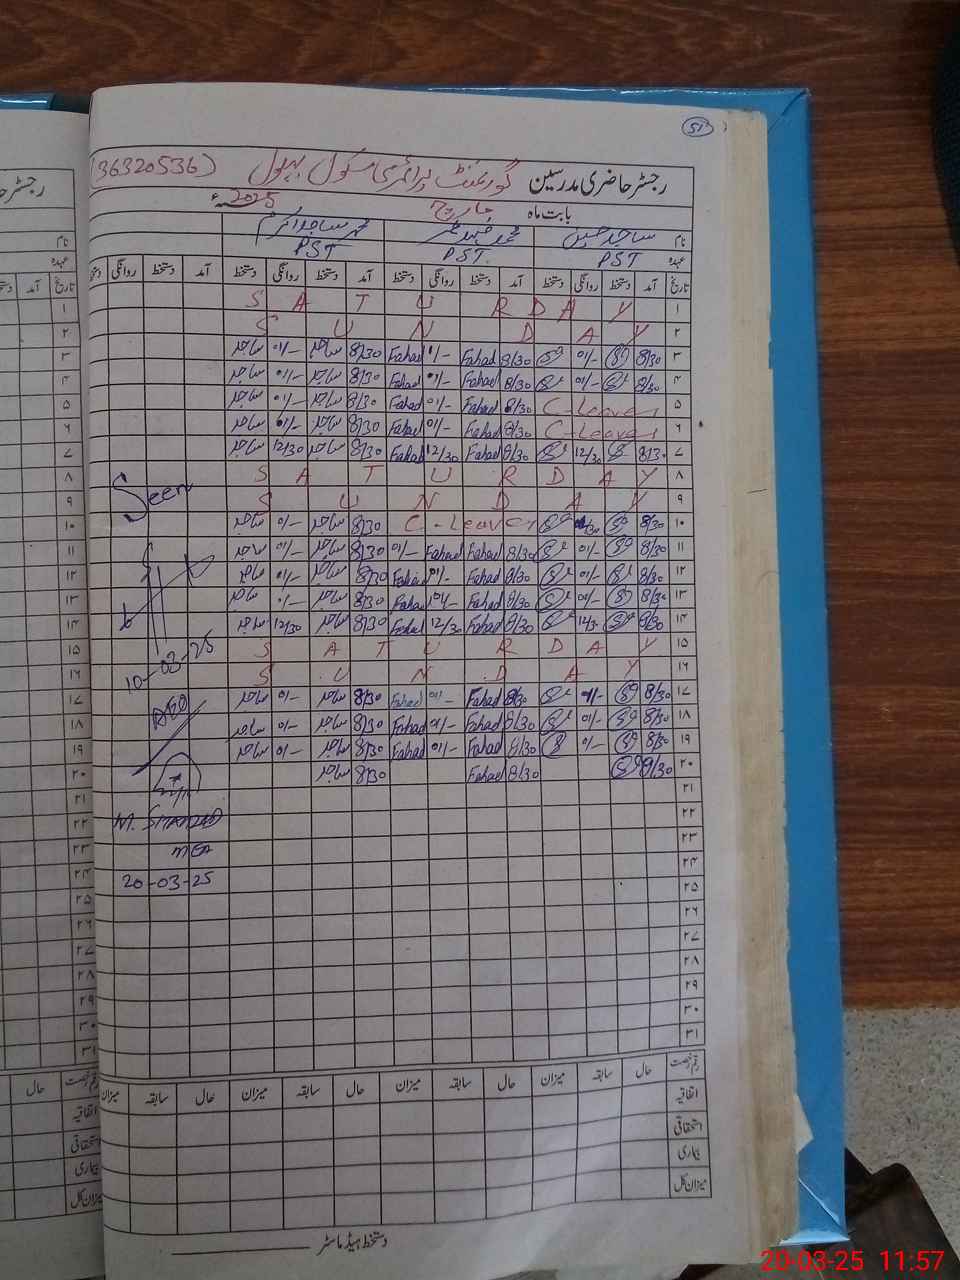 51
رجسٹر حاضری مدرسین گورنمنٹ پرائمری سکول (36320536)
بابت ماہ مارچ 2025ء
نام ساجد حسین محمد فہد محمد ساجد اکرم
عہدہ PST PST. PST
تاریخ آمد دستخط روانگی دستخط آمد دستخط روانگی دستخط آمد دستخط روانگی دستخط آمد دستخط روانگی دستخط
۱ SATURDAY
۲ SUNDAY
۳ 8/30 01/- 8/30 Fahad 01/- Fahad 8/30 ساجد 01/- ساجد
۴ 8/30 01/- 8/30 Fahad 01/- Fahad 8/30 ساجد 01/- ساجد
۵ C-Leave 8/30 Fahad 01/- Fahad 8/30 ساجد 01/- ساجد
۶ C-Leave 8/30 Fahad 01/- Fahad 8/30 ساجد 01/- ساجد
۷ 8/30 12/30 8/30 Fahad 12/30 Fahad 8/30 ساجد 12/30 ساجد
۸ SATURDAY
Seen
۹ SUNDAY
۱۰ 8/30 C-Leave 8/30 ساجد 01/- ساجد
۱۱ 8/30 01/- 8/30 Fahad Fahad 01/- 8/30 ساجد 01/- ساجد
۱۲ 8/30 01/- 8/30 Fahad 01/- Fahad 8/30 ساجد 01/- ساجد
۱۳ 8/30 01/- 8/30 Fahad 01/- Fahad 8/30 ساجد 01/- ساجد
۱۴ 8/30 12/30 8/30 Fahad 12/30 Fahad 8/30 ساجد 12/30 ساجد
۱۵ SATURDAY
10-03-25
۱۶ SUNDAY
۱۷ 8/30 01/- 8/30 Fahad 01/- Fahad 8/30 ساجد 01/- ساجد
AEO
۱۸ 8/30 01/- 8/30 Fahad 01/- Fahad 8/30 ساجد 01/- ساجد
۱۹ 8/30 01/- 8/30 Fahad 01/- Fahad 8/30 ساجد 01/- ساجد
۲۰ 8/30 8/30 Fahad 8/30 ساجد
۲۱
۲۲
MEA
۲۳
۲۴
20-03-25
۲۵
۲۶
۲۷
۲۸
۲۹
۳۰
۳۱
رقم رخصت حال سابقہ میزان حال سابقہ میزان حال سابقہ میزان حال سابقہ میزان
اتفاقیہ
استحقاقی
بیماری
میزان کل
دستخط ہیڈ ماسٹر
20-03-25 11:57